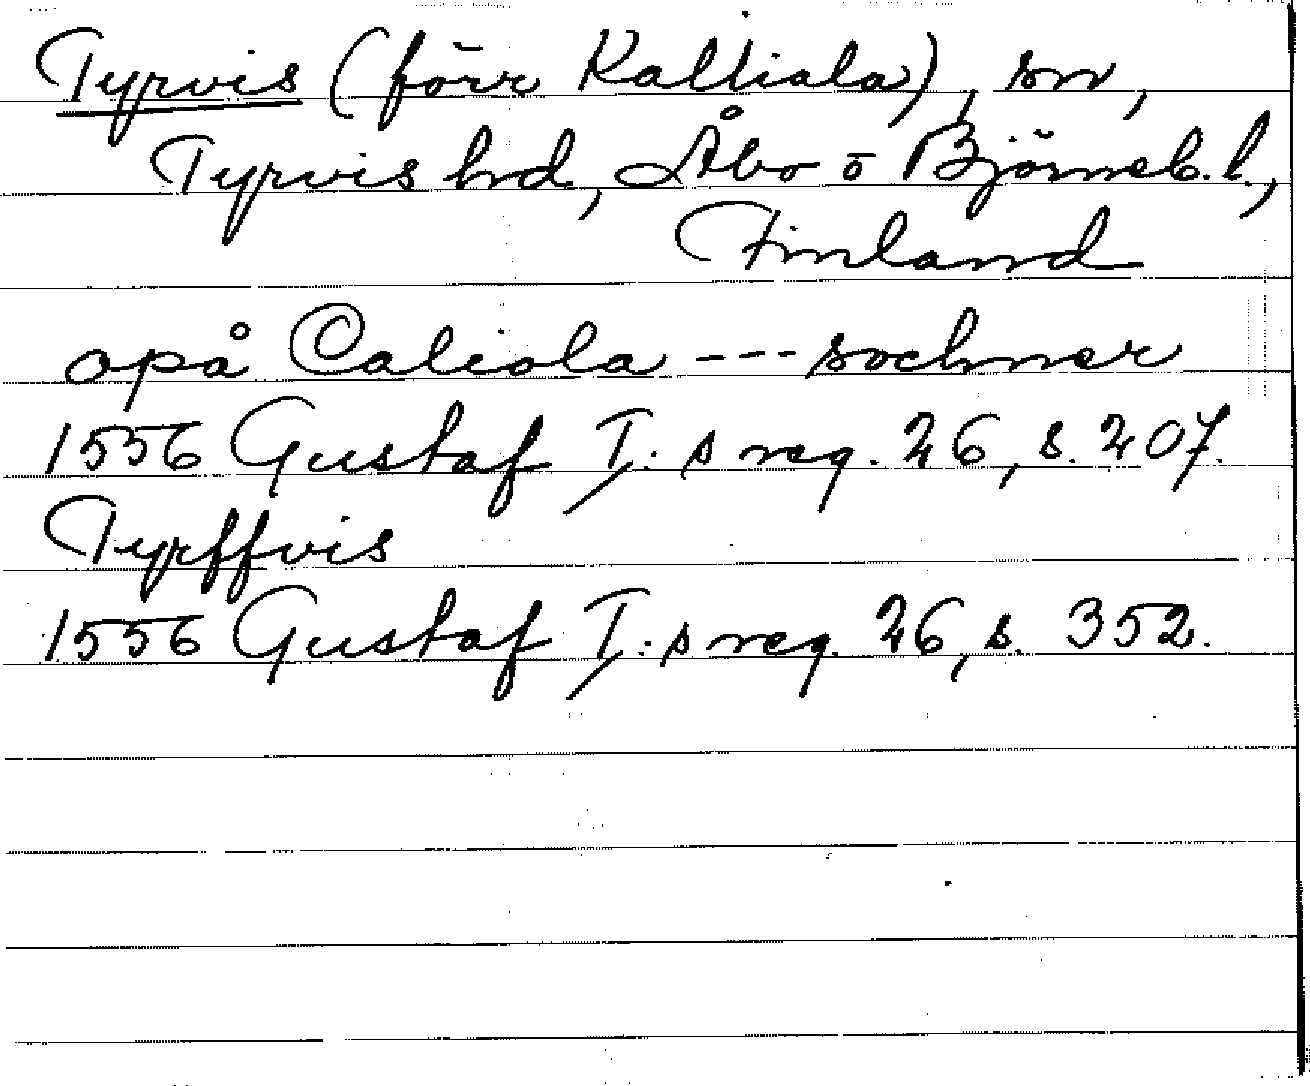 Tyrvis (förr Kalliala), sn,
Tyrvis hd, Åbo o Björneb. l.,
Finland
opå Caliola --- sochner
1556 Gustaf I:s reg. 26, s. 207.
Tyrffvis
1556 Gustaf I:s reg. 26, s. 352.